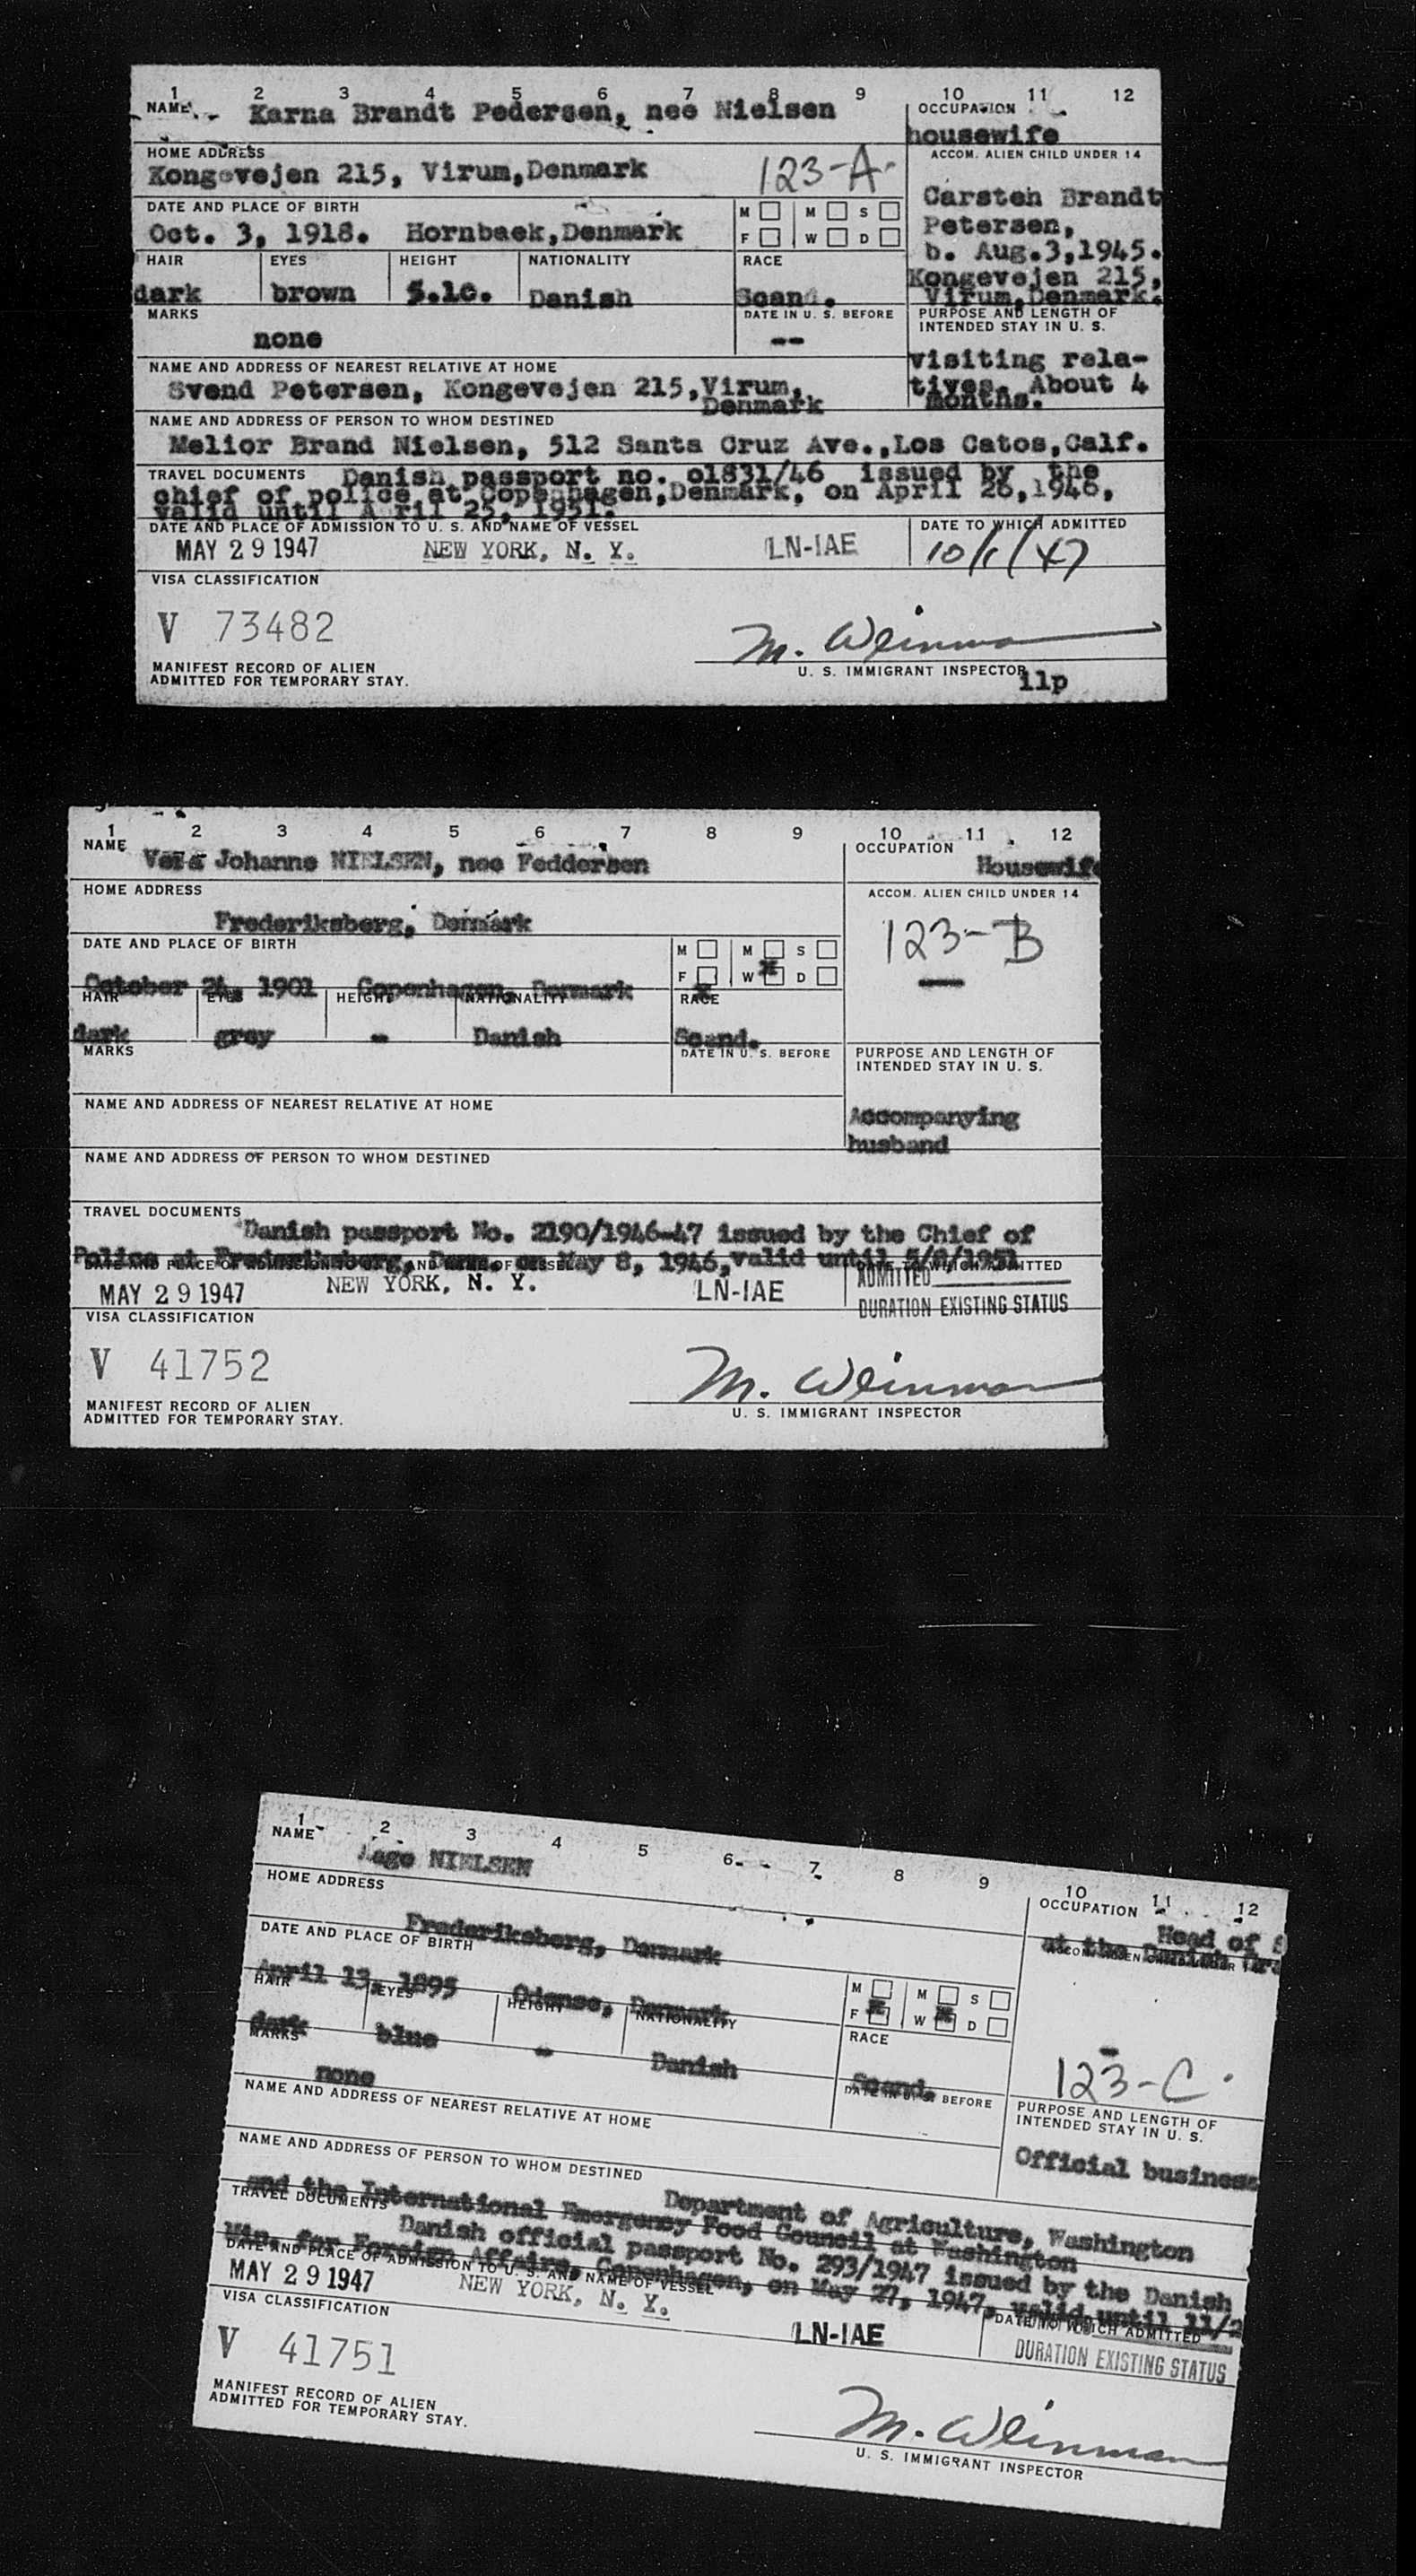 1 2 3 4 5 6 7 8 9 10 11 12
NAME Karna Brandt Pedersen, nee Nielsen
OCCUPATION
housewife
HOME ADDRESS
Kongevejen 215, Virum,Denmark
123-A
ACCOM. ALIEN CHILD UNDER 14
Carsten Brandt
Petersen,
b. Aug.3,1945.
Kongevejen 215,
Virum,Denmark.
DATE AND PLACE OF BIRTH
Oct. 3, 1918. Hornbaek,Denmark
M M S
F W D
HAIR EYES HEIGHT NATIONALITY RACE
dark brown 5.10. Danish Scand.
MARKS
none
DATE IN U. S. BEFORE
--
PURPOSE AND LENGTH OF
INTENDED STAY IN U. S.
visiting rela-
tives. About 4
months.
NAME AND ADDRESS OF NEAREST RELATIVE AT HOME
Svend Petersen, Kongevejen 215,Virum,
Denmark
NAME AND ADDRESS OF PERSON TO WHOM DESTINED
Melior Brand Nielsen, 512 Santa Cruz Ave.,Los Catos,Calf.
TRAVEL DOCUMENTS Danish passport no. o1831/46 issued by the
chief of police at Copenhagen,Denmark, on April 26,1946,
valid until A ril 25, 1951.
DATE AND PLACE OF ADMISSION TO U. S. AND NAME OF VESSEL
DATE TO WHICH ADMITTED
MAY 29 1947 NEW YORK, N. Y. LN-IAE 10/1/47
VISA CLASSIFICATION
V 73482
M. Weinman
MANIFEST RECORD OF ALIEN
ADMITTED FOR TEMPORARY STAY.
U. S. IMMIGRANT INSPECTOR
11p
1 2 3 4 5 6 7 8 9 10 11 12
NAME Vera Johanne NIELSEN, nee Feddersen
OCCUPATION
Housewife
HOME ADDRESS
Frederiksberg, Denmark
ACCOM. ALIEN CHILD UNDER 14
123-B
—
DATE AND PLACE OF BIRTH
October 24, 1901 Copenhagen, Denmark
M M S
F W D
HAIR EYES HEIGHT NATIONALITY RACE
dark grey - Danish Scand.
MARKS
DATE IN U. S. BEFORE
PURPOSE AND LENGTH OF
INTENDED STAY IN U. S.
Accompanying
husband
NAME AND ADDRESS OF NEAREST RELATIVE AT HOME
NAME AND ADDRESS OF PERSON TO WHOM DESTINED
TRAVEL DOCUMENTS
Danish passport No. 2190/1946-47 issued by the Chief of
Police at Frederiksberg, Denm. on May 8, 1946,valid until 5/8/1951
DATE AND PLACE OF ADMISSION TO U. S. AND NAME OF VESSEL
DATE TO WHICH ADMITTED
ADMITTED
MAY 29 1947 NEW YORK, N. Y. LN-IAE
DURATION EXISTING STATUS
VISA CLASSIFICATION
V 41752
M. Weinman
MANIFEST RECORD OF ALIEN
ADMITTED FOR TEMPORARY STAY.
U. S. IMMIGRANT INSPECTOR
1 2 3 4 5 6 7 8 9 10 11 12
NAME Aage NIELSEN
OCCUPATION
Head of
at the Danish
HOME ADDRESS
Frederiksberg, Denmark
DATE AND PLACE OF BIRTH
April 13, 1895 Odense, Denmark
M M S
F W D
HAIR EYES HEIGHT NATIONALITY RACE
dark blue - Danish Scand.
-
123-C
MARKS
none
DATE IN U. S. BEFORE
PURPOSE AND LENGTH OF
INTENDED STAY IN U. S.
Official business
NAME AND ADDRESS OF NEAREST RELATIVE AT HOME
NAME AND ADDRESS OF PERSON TO WHOM DESTINED
Department of Agriculture, Washington
and the International Emergency Food Council at Washington
TRAVEL DOCUMENTS
Danish official passport No. 293/1947 issued by the Danish
Min. for Foreign Affairs, Copenhagen, on May 27, 1947, valid until 11/2
DATE AND PLACE OF ADMISSION TO U. S. AND NAME OF VESSEL
DATE TO WHICH ADMITTED
MAY 29 1947 NEW YORK, N. Y. LN-IAE
DURATION EXISTING STATUS
VISA CLASSIFICATION
V 41751
M. Weinman
MANIFEST RECORD OF ALIEN
ADMITTED FOR TEMPORARY STAY.
U. S. IMMIGRANT INSPECTOR